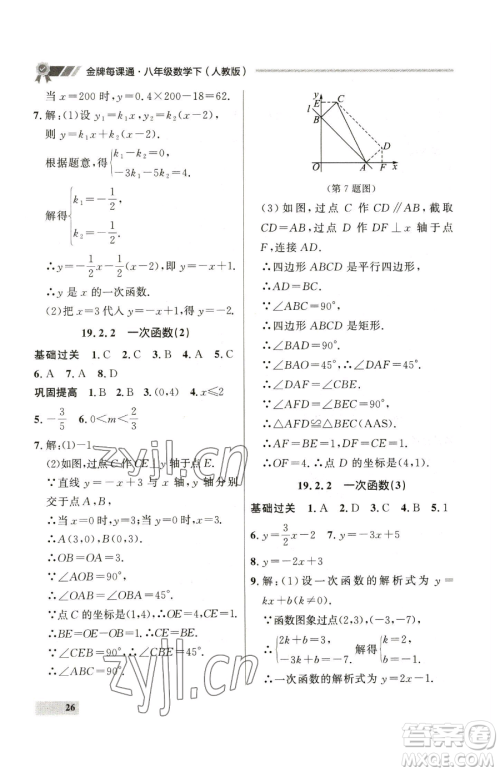 金牌每课通·八年级数学下(人教版)
当 x=200 时, y=0.4×200-18=62.
7.解:(1)设 y₁=k₁x,y₂=k₂(x-2),
则 y=k₁x+k₂(x-2).
根据题意,得{k₁-k₂=-1,
-3k₁-5k₂=4.
解得{k₁=-1/2,
k₂=-1/2.
∴y=-1/2x-1/2(x-2),
即 y=-x+1.
∴y是x的一次函数.
(2)把x=3代入y=-x+1,得y=-2.
19.2.2 一次函数(2)
基础过关 1.C 2.C 3.B 4.A 5.C
6.A 7.A
巩固提高 1.A 2.B 3.(0,4) 4.≤2
5.-3/5 6.0<m<2/3
7.解:(1)-1
(2)如图,过点C作CE⊥y轴于点E.
∵直线y=-x+3与x轴、y轴分别
交于点A,B,
当x=0时,y=3,当y=0时,x=3,
∴点A(3,0),点B(0,3).
∴OB=OA=3.
∵∠AOB=90°,
∴∠OAB=∠OBA=45°.
∵点C的坐标为(1,4),∴OE=4,CE=1.
∴BE=OE-OB=1.∴BE=CE.
∵∠CEB=90°,∴∠CBE=45°.
∴∠ABC=90°.
y
l
E
C
B
D
O
A
F
x
(第7题图)
(3)如图,过点C作CD∥AB,截取
CD=AB,过点D作DF⊥x轴于点
F,连接AD.
∴四边形ABCD是平行四边形.
∴AD=BC.
∵∠ABC=90°,
∴四边形ABCD是矩形.
∴∠BAD=90°.
∵∠BAO=45°,∴∠DAF=45°.
∴∠DAF=∠CBE.
∵∠AFD=∠BEC=90°,
∴△AFD≌△BEC(AAS).
∴AF=BE=1,DF=CE=1.
∴OF=4.∴点D的坐标是(4,1).
19.2.2 一次函数(3)
基础过关 1.A 2.D 3.B 4.B 5.1
6.y=3/2x-2 7.y=3x+5
8.y=-2x+3
9.解:(1)设一次函数的解析式为y=
kx+b(k≠0).
∵函数图象过点(2,3),(-1,-3),
∴{2k+b=3,
-k+b=-3.
解得{k=2,
b=-1.
∴一次函数的解析式为y=2x-1.
26
zyjl.cn
zyjl.cn
作业精灵